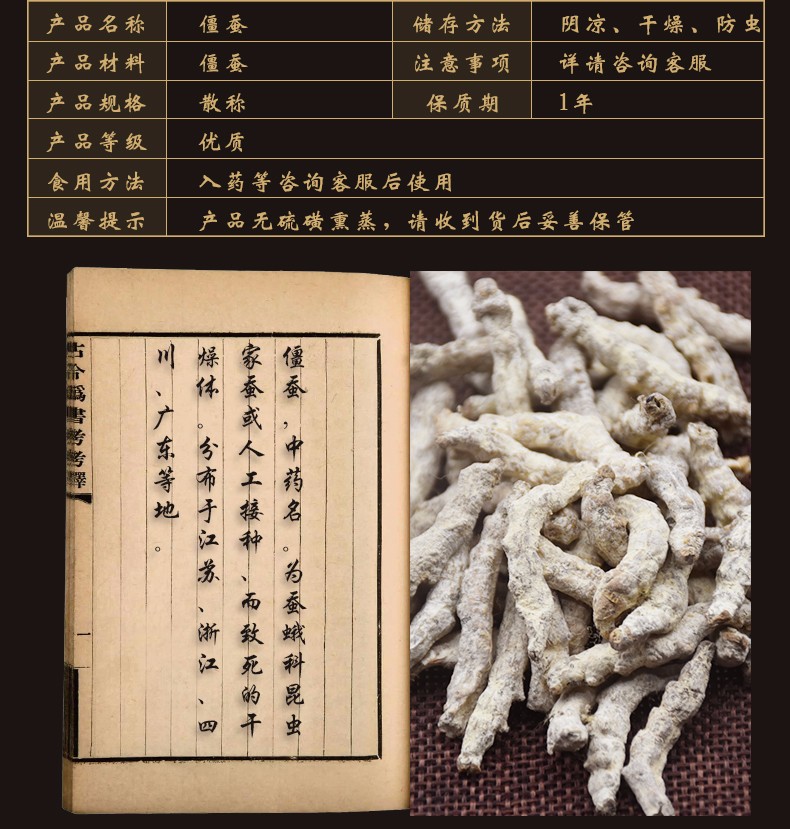 产品名称 僵蚕 储存方法 阴凉、干燥、防虫
产品材料 僵蚕 注意事项 详请咨询客服
产品规格 散称 保质期 1年
产品等级 优质
食用方法 入药等咨询客服后使用
温馨提示 产品无硫磺熏蒸，请收到货后妥善保管
僵蚕，中药名。为蚕蛾科昆虫
家蚕或人工接种、而致死的干
燥体。分布于江苏、浙江、四
川、广东等地。
古今伪書考考釋
一